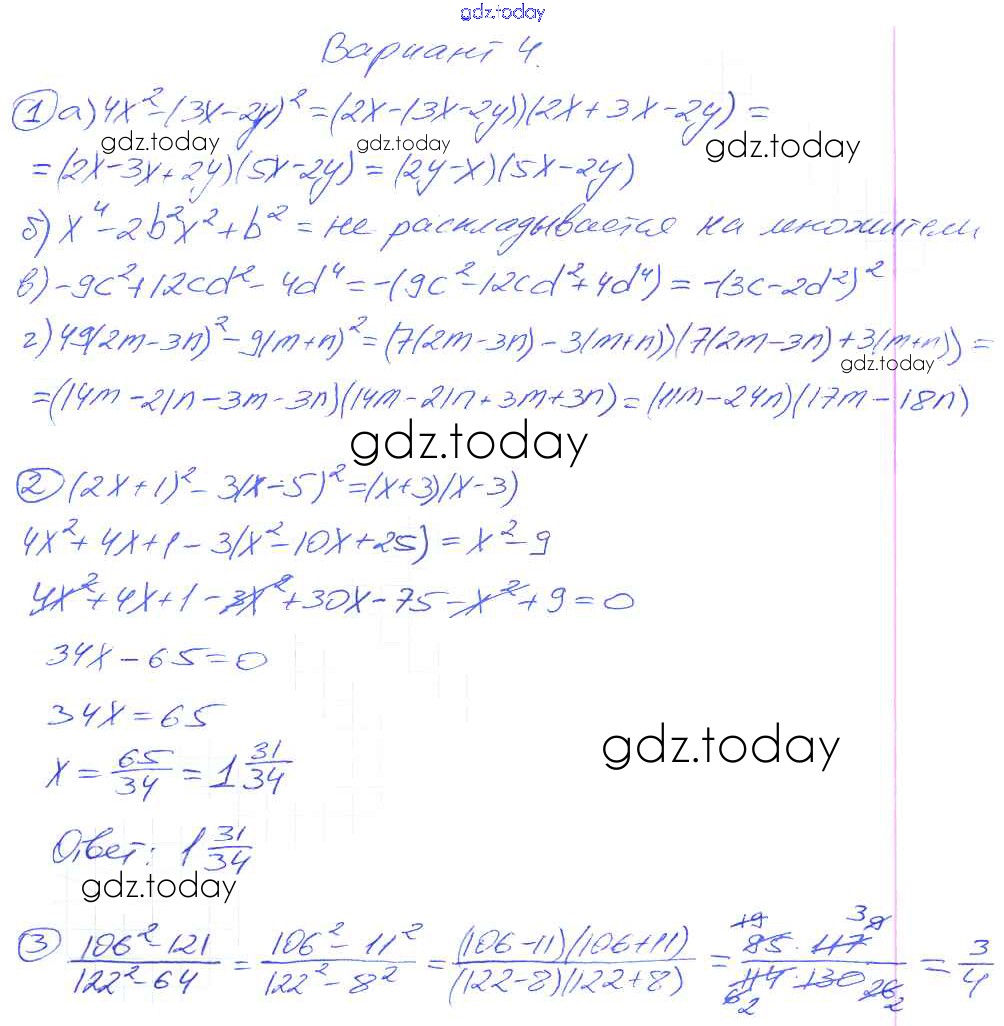 gdz.today
Вариант 4.
① а) 4x² - (3x - 2y)² = (2x - (3x - 2y))(2x + 3x - 2y) =
gdz.today gdz.today gdz.today
= (2x - 3x + 2y)(5x - 2y) = (2y - x)(5x - 2y)
б) x⁴ - 2b²x² + b² = не раскладывается на множители
в) -9c² + 12cd² - 4d⁴ = -(9c² - 12cd² + 4d⁴) = -(3c - 2d²)²
г) 49(2m - 3n)² - 9(m + n)² = (7(2m - 3n) - 3(m + n))(7(2m - 3n) + 3(m + n)) =
gdz.today
= (14m - 21n - 3m - 3n)(14m - 21n + 3m + 3n) = (11m - 24n)(17m - 18n)
gdz.today
② (2x + 1)² - 3(x - 5)² = (x + 3)(x - 3)
4x² + 4x + 1 - 3(x² - 10x + 25) = x² - 9
4x² + 4x + 1 - 3x² + 30x - 75 - x² + 9 = 0
34x - 65 = 0
34x = 65
gdz.today
x = 65/34 = 1 31/34
Ответ: 1 31/34
gdz.today
③ (106² - 121)/(122² - 64) = (106² - 11²)/(122² - 8²) = ((106 - 11)(106 + 11))/((122 - 8)(122 + 8)) = (85 · 117)/(114 · 130) = 3/4